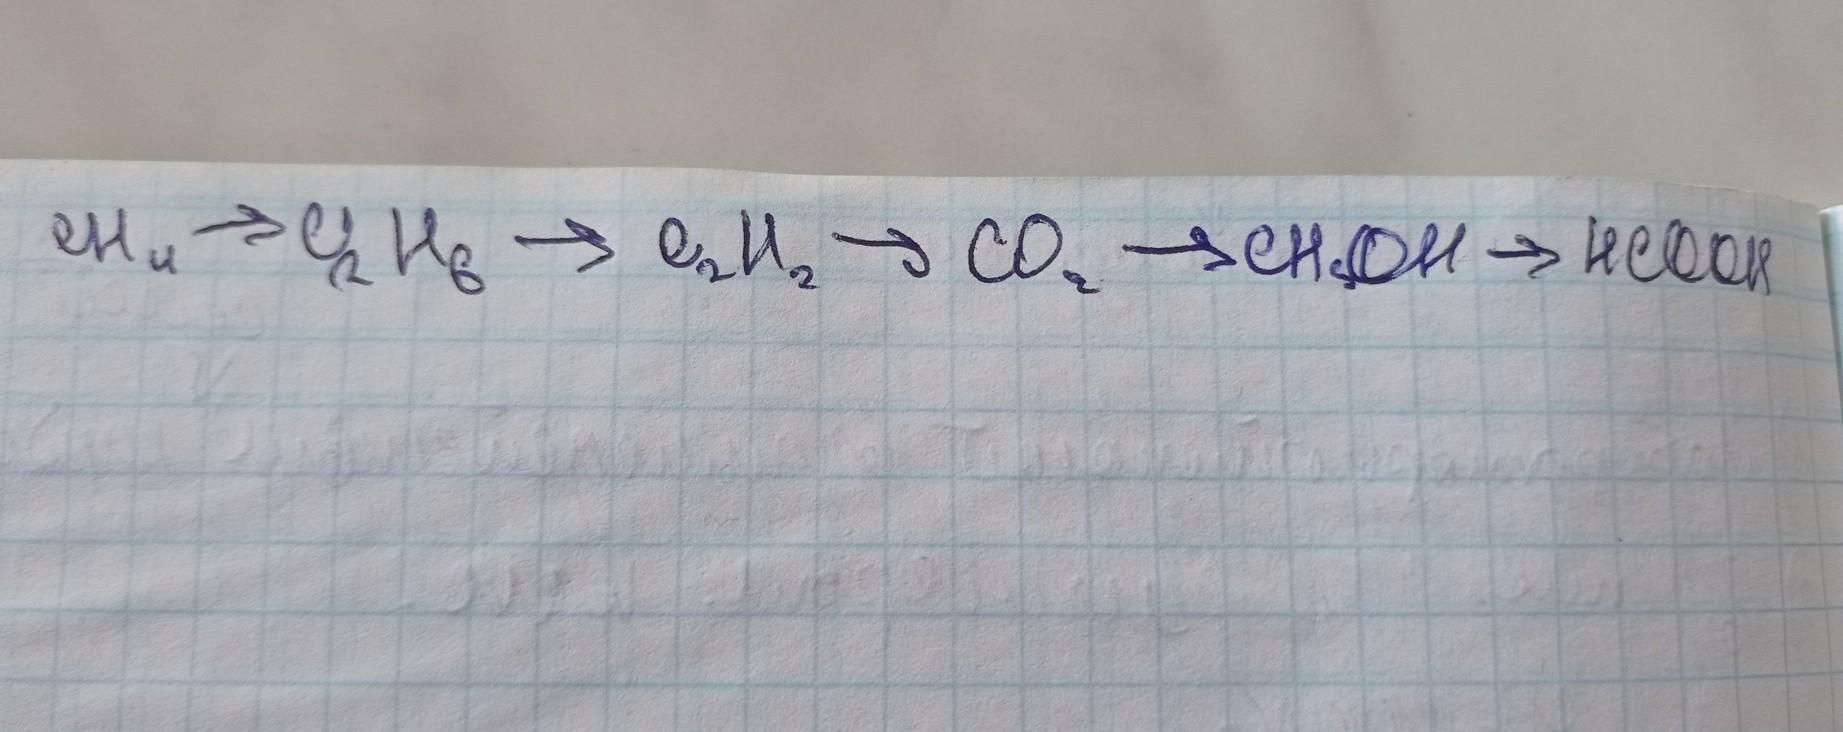 CH₄ → C₂H₆ → C₂H₂ → CO₂ → CH₃OH → HCOOH